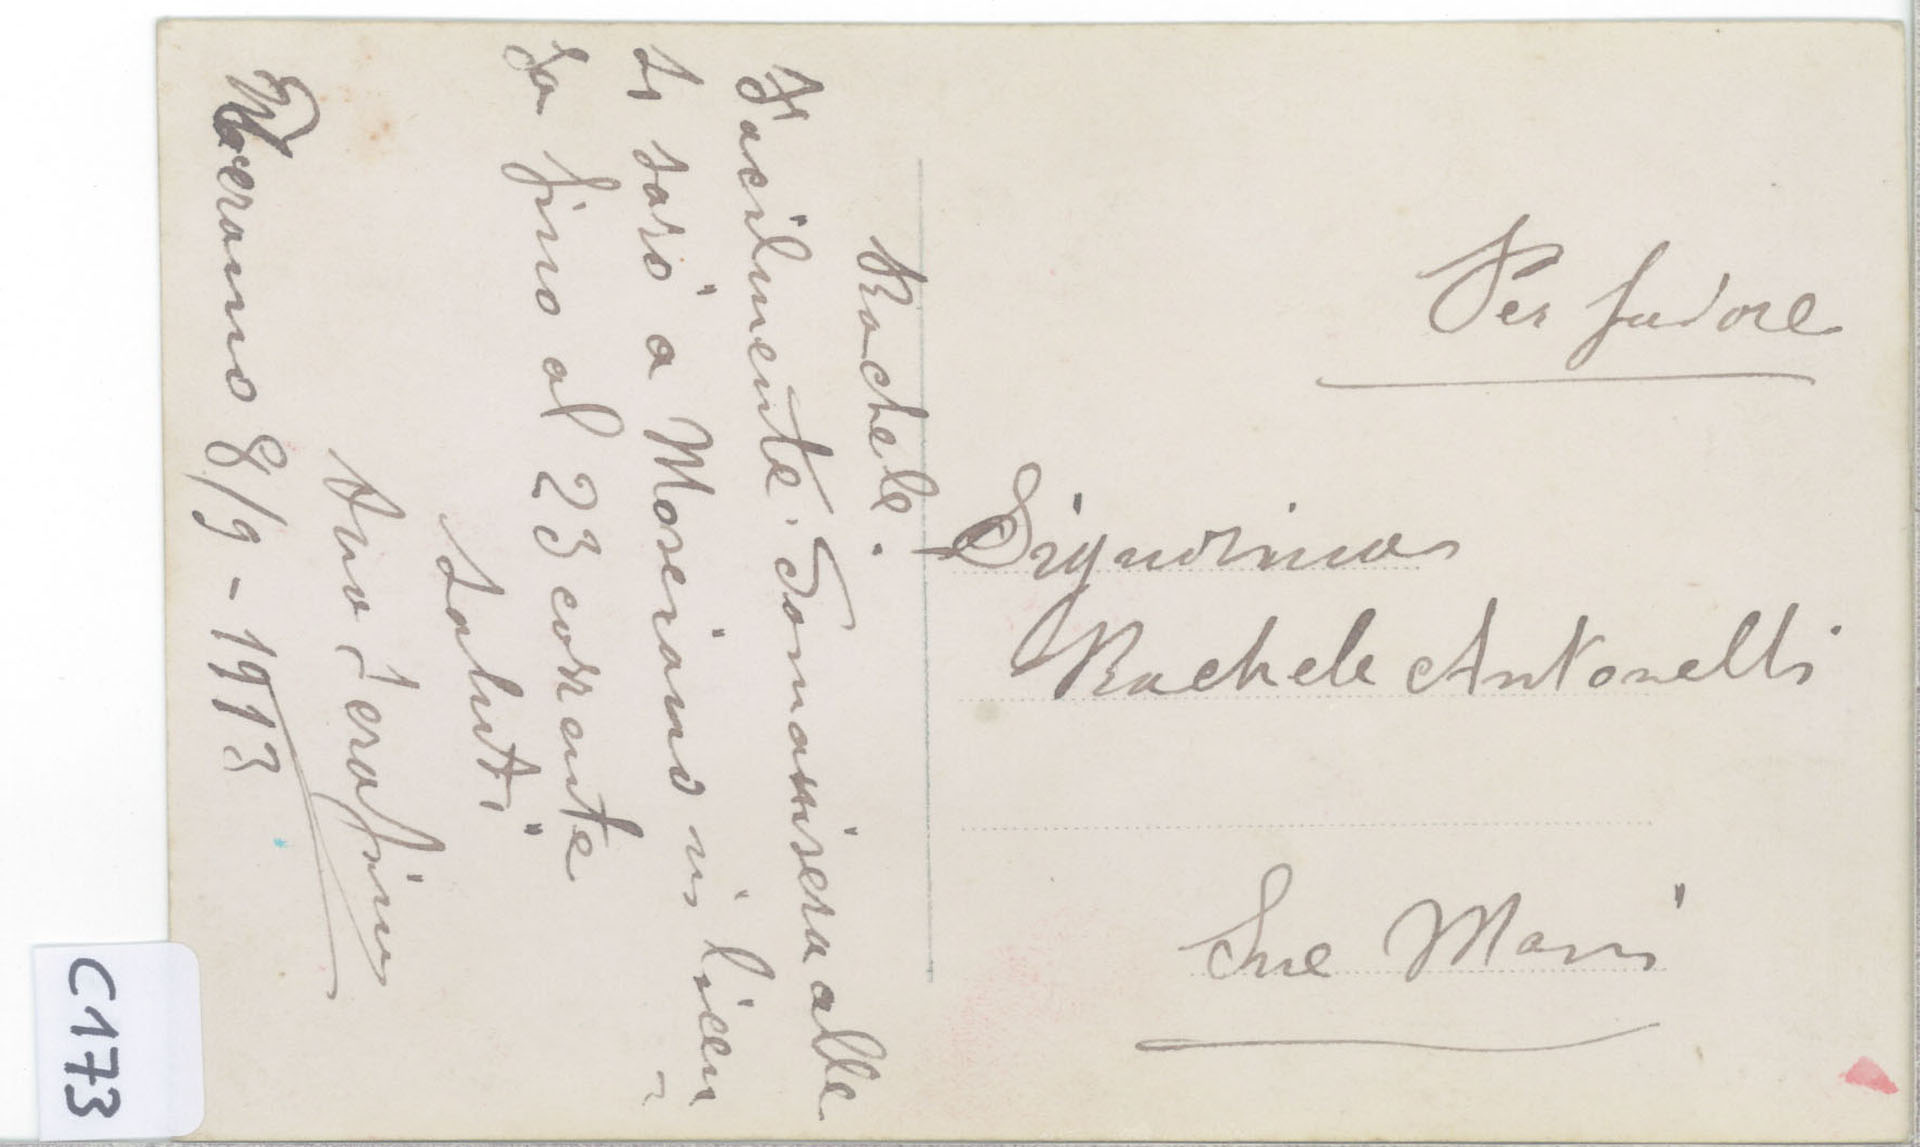 Rachele.
Facilmente Domani sera alle
7 sarò a Moseriano in licen-
za fino al 23 corrente
saluti
tuo Serafino
Macerano 8/9-1913
Per favore
Signorina
Rachele Antonelli
Sue Mani
C173